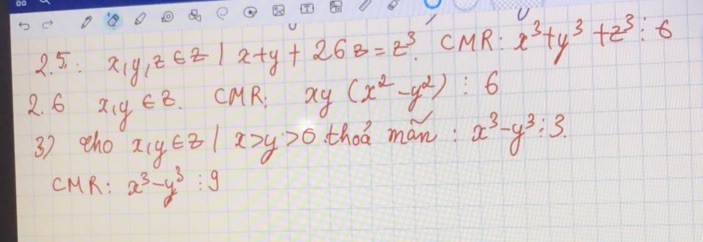 2.5: x,y,z ∈ Z | x+y+26z = z³. CMR: x³+y³+z³ ⋮ 6
2.6 x,y ∈ Z. CMR: xy (x²-y²) ⋮ 6
3) cho x,y ∈ Z | x>y>0 thoả mãn : x³-y³ ⋮ 3.
CMR: x³-y³ ⋮ 9